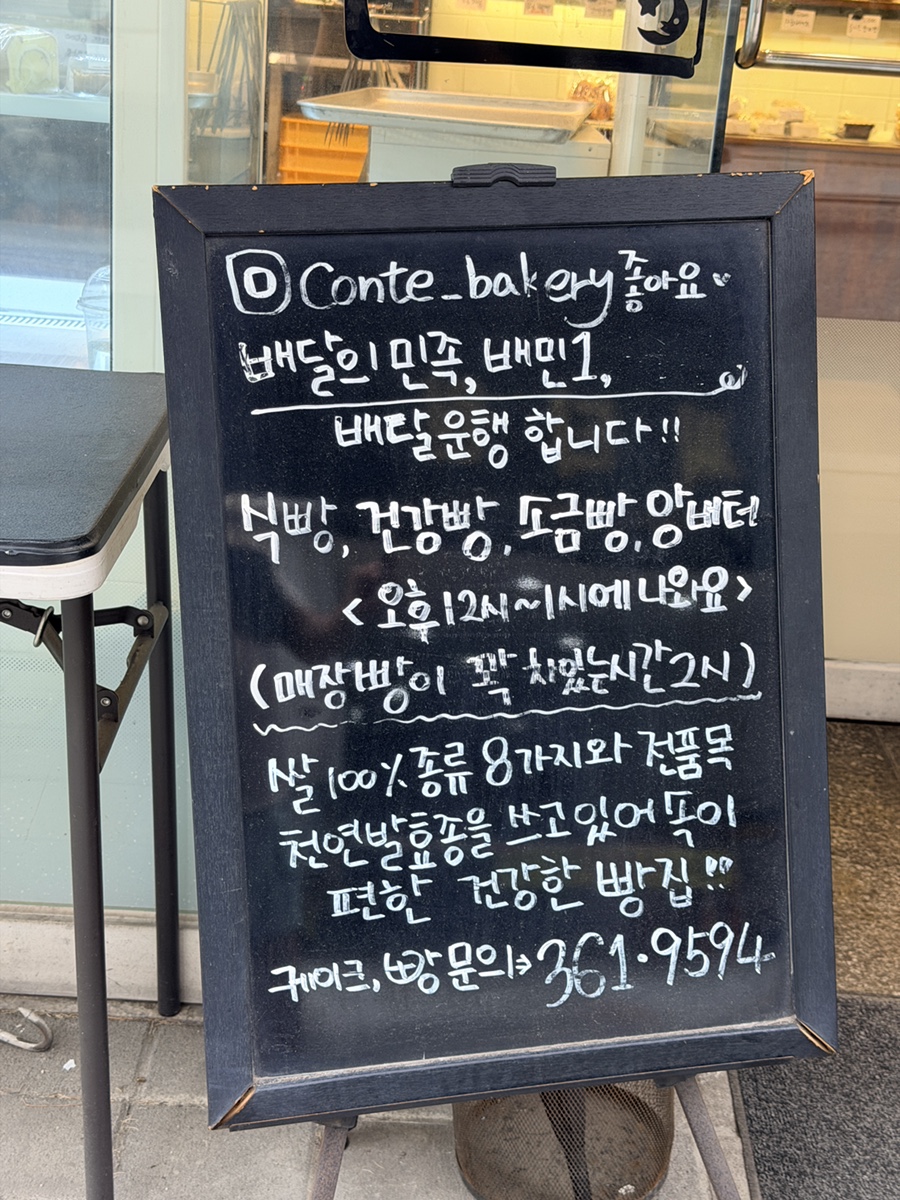 Conte_bakery 좋아요♥
배달의민족, 배민1,
배달운행 합니다!!
식빵, 건강빵, 소금빵, 앙버터
<오후12시~1시에나와요>
(매장빵이 꽉 차있는시간2시)
쌀100%종류 8가지와 전품목
천연발효종을 쓰고있어 속이
편한 건강한 빵집!!
케이크, 빵문의→361·9594